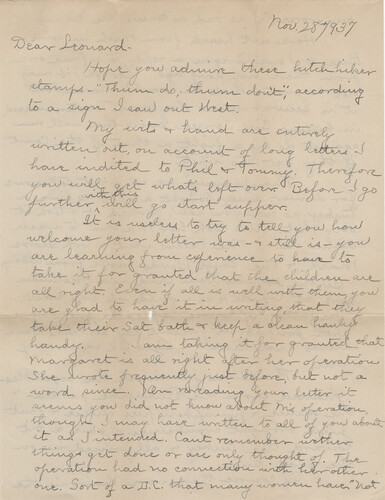 Nov. 28 1937
Dear Leonard-
Hope you admire these hitch hiker
stamps - "Thum do, thum don't", according
to a sign I saw out West.
My wits & hand are entirely
written out, on account of long letters I
have indited to Phil & Tommy. Therefore
you will get whats left over. Before I go
further with this I will go start supper.
It is useless to try to tell you how
welcome your letter was - & still is - you
are learning from experience to have to
take it for granted that the children are
all right. Even if all is well with them, you
are glad to have it in writing, that they
take their Sat bath & keep a clean hanky
handy. I am taking it for granted that
Margaret is all right after her operation
She wrote frequently just before, but not a
word since. In rereading your letter it
seems you did not know about operation
though I may have written to all of you about
it as I intended. Cant remember wether
things get done or are only thought of. The
operation had no connection with her other
one. Sort of a D.C. that many women have. Not